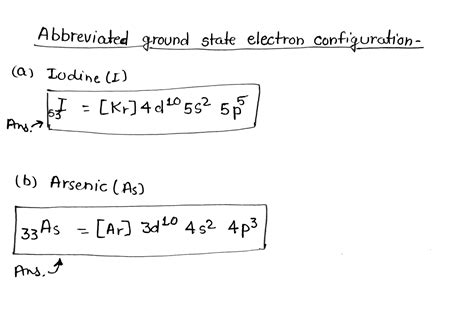 Abbreviated ground state electron configuration-
(a) Iodine (I)
₅₃I = [Kr] 4d¹⁰ 5s² 5p⁵
Ans.→
(b) Arsenic (As)
₃₃As = [Ar] 3d¹⁰ 4s² 4p³
Ans.